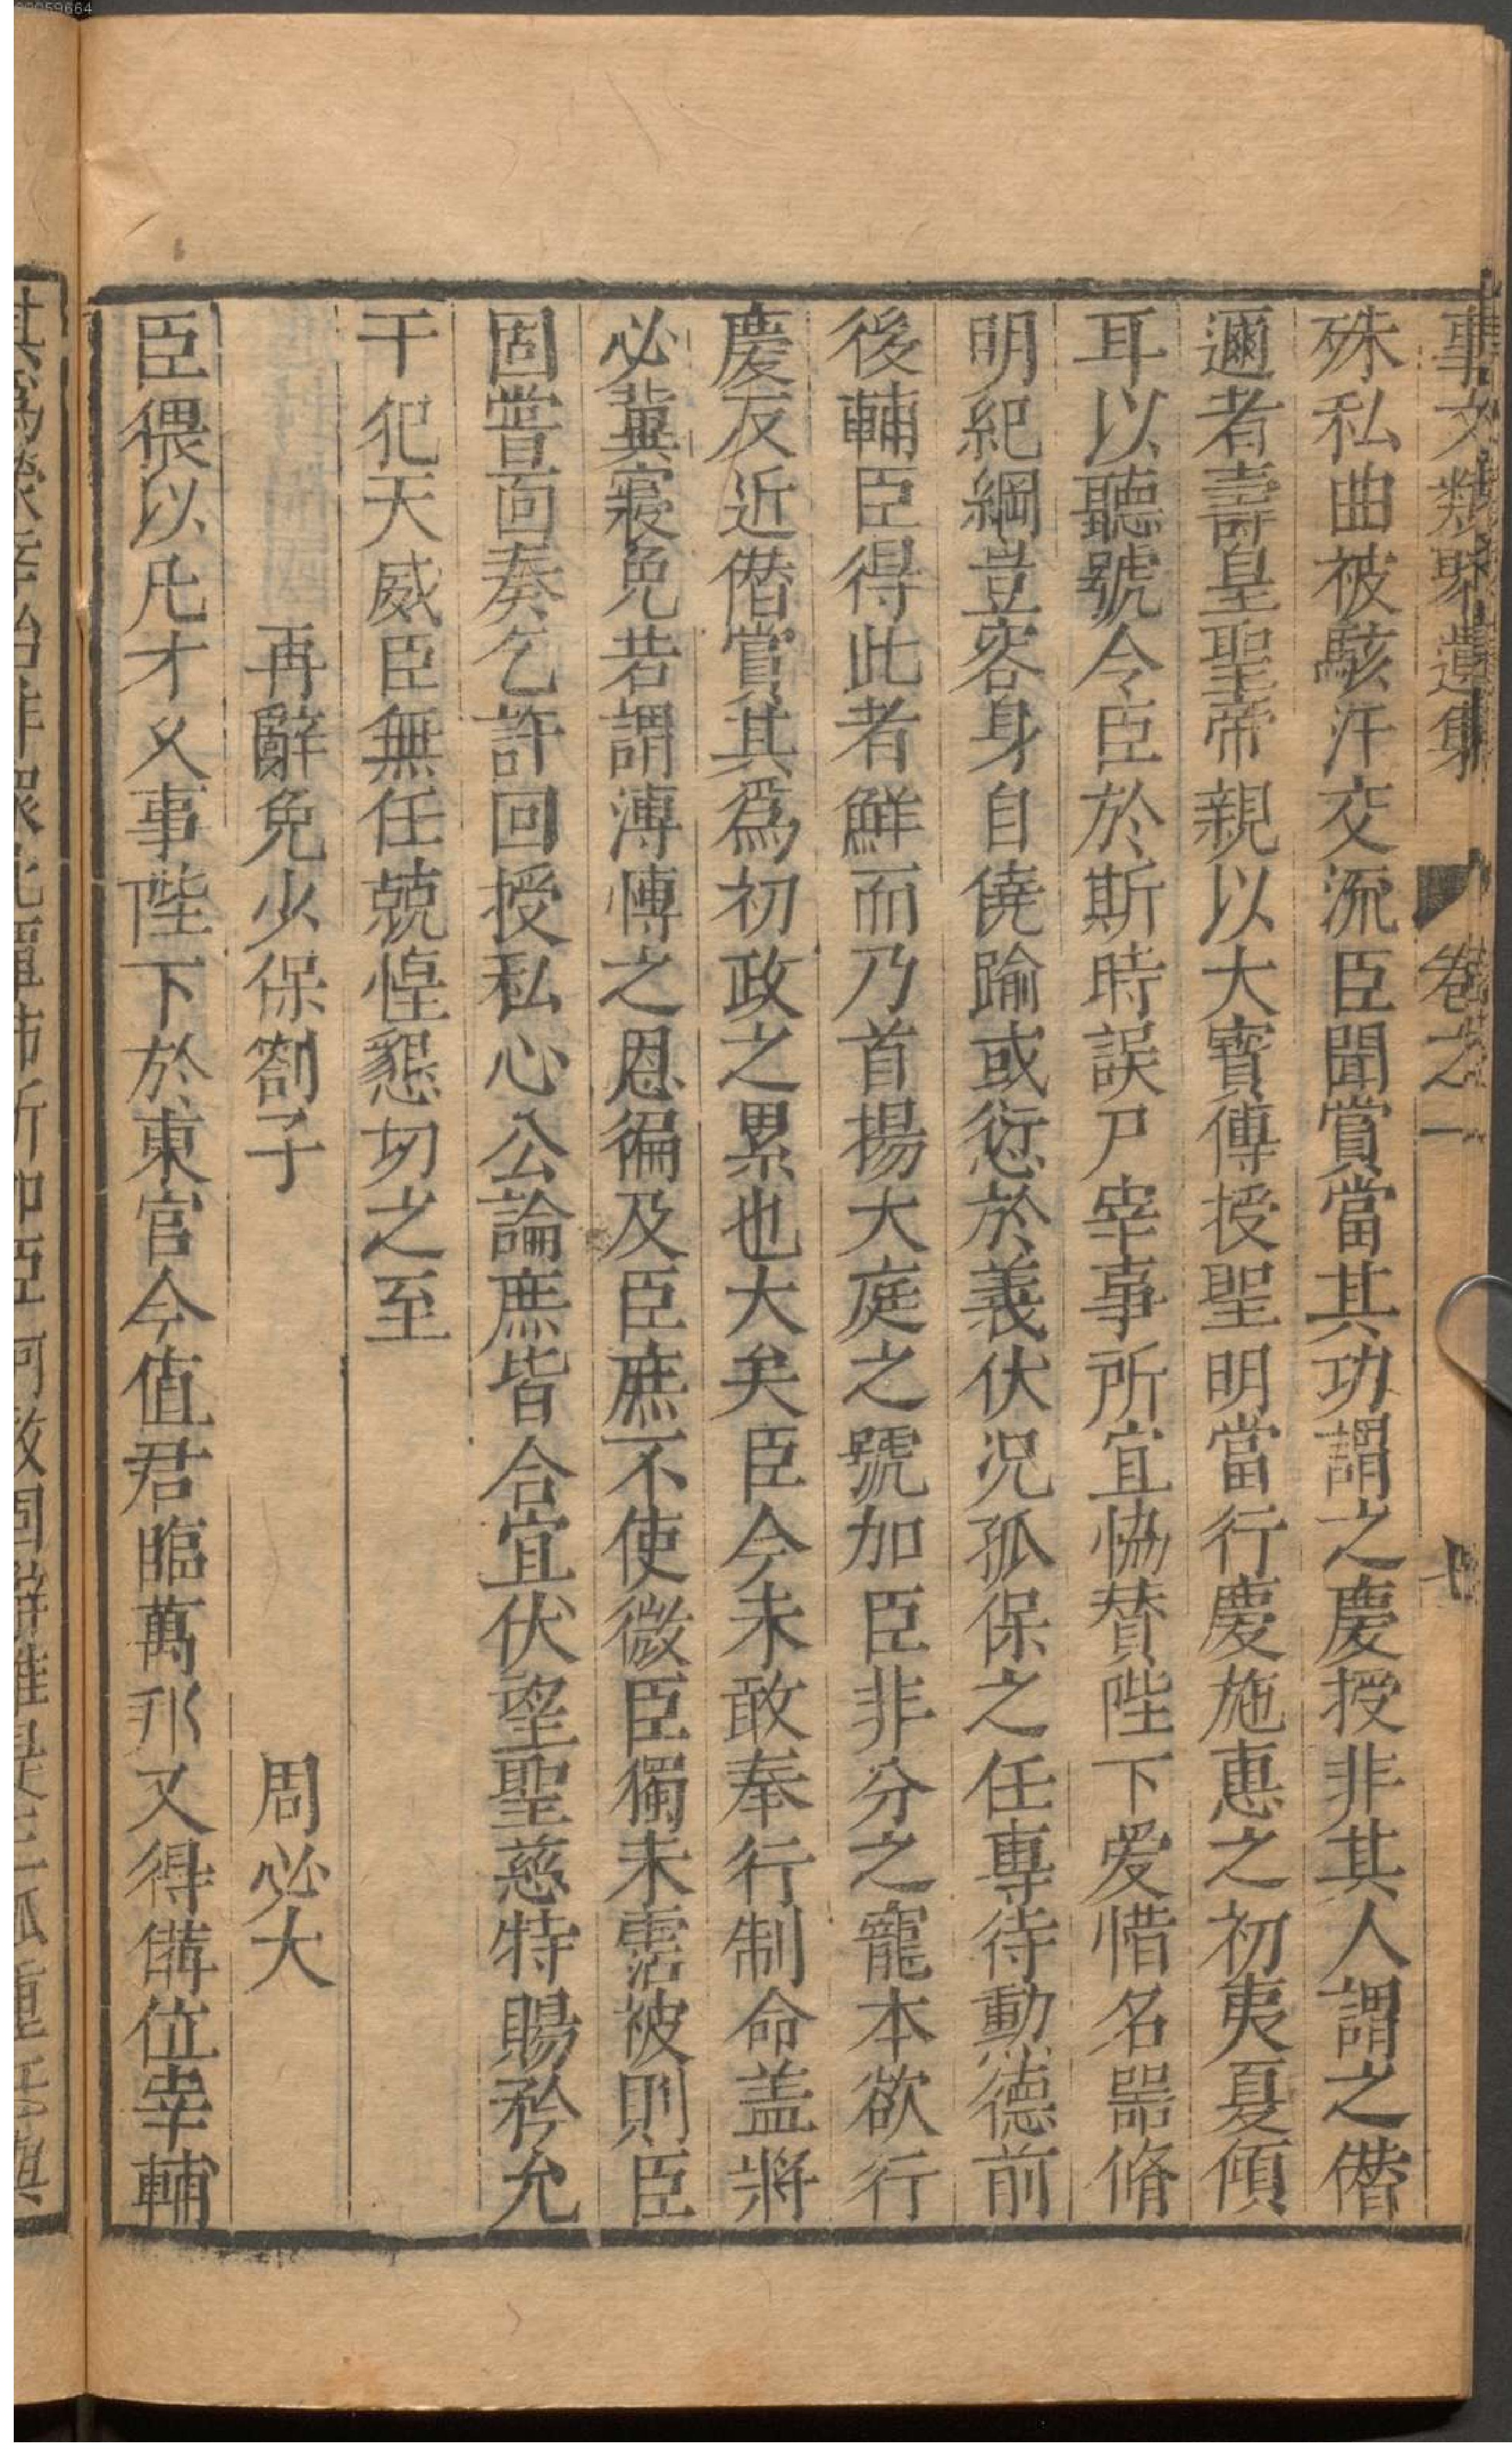 事文類聚遺集 卷之一
殊私曲被駭汗交流臣聞賞當其功謂之慶授非其人謂之僭
邇者壽皇聖帝親以大寶傳授聖明當行慶施惠之初夷夏傾
耳以聽號令臣於斯時誤尸宰事所宜恊賛陛下爱惜名噐脩
明紀綱豈容身自僥踰或愆於義伏况孤保之任專待勲德前
後輔臣得此者鮮而乃首揚大庭之號加臣非分之寵本欲行
慶反近僭賞其爲初政之累也大矣臣今未敢奉行制命盖將
必冀寢免若謂溥慱之恩徧及臣庶不使微臣獨未霑被則臣
固嘗面奏乞許回授私心公論庶皆合宜伏望聖慈特賜矜允
干犯天威臣無任兢惶懇切之至
再辭免少保劄子 周必大
臣猥以凡才乂事陛下於東宫今值君臨萬邦又得偹位宰輔